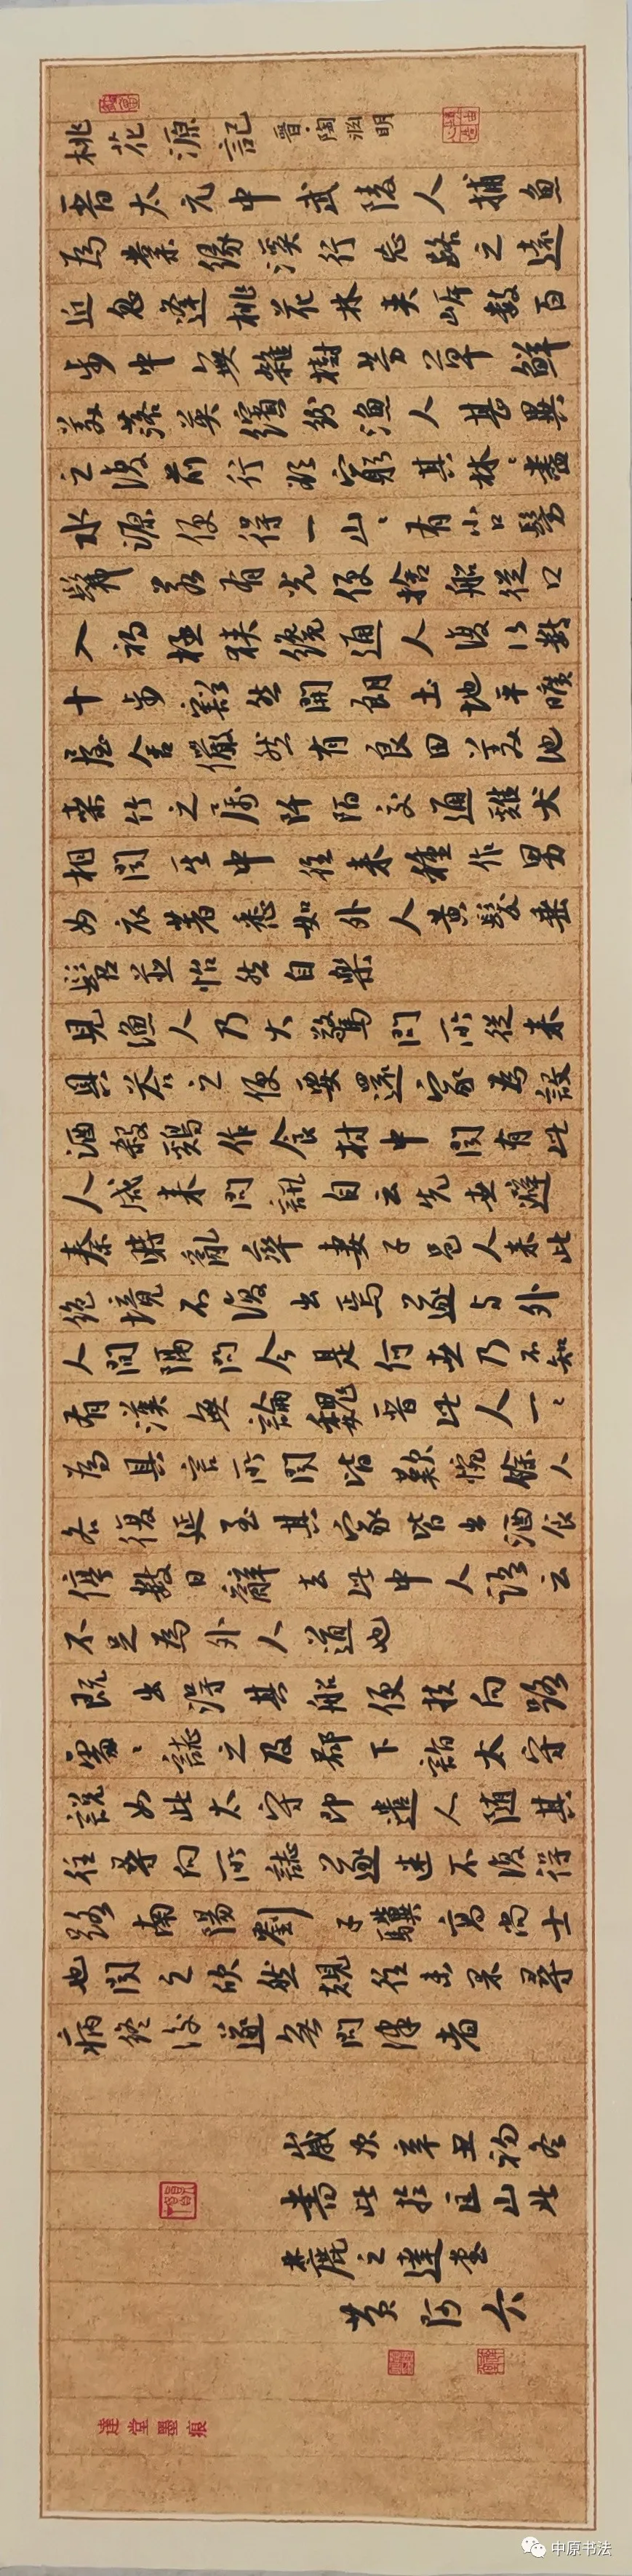 桃花源記 晉·陶淵明
晉太元中武陵人捕魚
為業緣溪行忘路之遠
近忽逢桃花林夾岸數百
步中無雜樹芳草鮮
美落英繽紛漁人甚異
之復前行欲窮其林〻盡
水源便得一山〻有小口髣
髴若有光便捨船從口
入初極狹纔通人復行數
十步豁然開朗土地平曠
屋舍儼然有良田美池
桑竹之屬阡陌交通雞犬
相聞其中往來種作男
女衣著悉如外人黃髮垂
髫並怡然自樂
見漁人乃大驚問所從來
具答之便要還家為設
酒殺鷄作食村中聞有此
人咸來問訊自云先世避
秦時亂率妻子邑人來此
絕境不復出焉遂與外
人間隔問今是何世乃不知
有漢無論魏晉此人一〻
為具言所聞皆歎惋餘人
各復延至其家皆出酒食
停數日辭去此中人語云
不足為外人道也
既出得其船便扶向路
處〻誌之及郡下詣太守
說如此太守即遣人隨其
往尋向所誌遂迷不復得
路南陽劉子驥高尚士
也聞之欣然規往未果尋
病終後遂無問津者
歲次辛丑初冬
書此於且山北
麓之達堂
黃阿六
達堂墨痕
中原书法